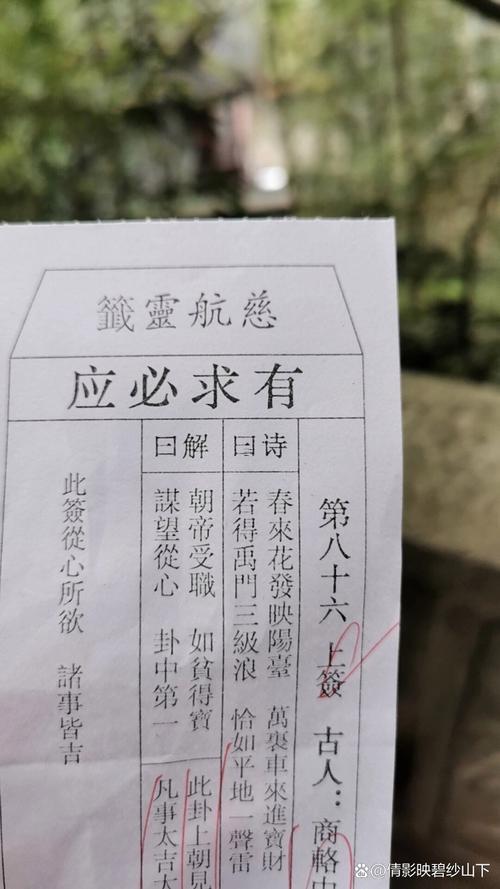 慈航靈籤
有求必应
第八十六 上簽 古人：商輅
诗曰
春來花發映陽臺 萬裏車來進寶財
若得禹門三級浪 恰如平地一聲雷
解曰
朝帝受職 如貧得寶
謀望從心 卦中第一
此卦上朝見
凡事太吉
此簽從心所欲 諸事皆吉
@倩影映碧纱山下